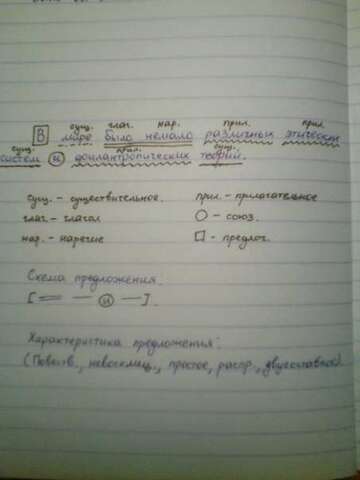 сущ. глаг. нар. прил. прил.
В мире было немало различных этических
сущ. прил. сущ.
систем и филантропических теорий.
сущ. - существительное. прил. - прилагательное
глаг. - глагол ○ - союз.
нар. - наречие □ - предлог.
Схема предложения.
[ = — и — ].
Характеристика предложения:
(Повеств., невосклиц., простое, распр., двусоставное).